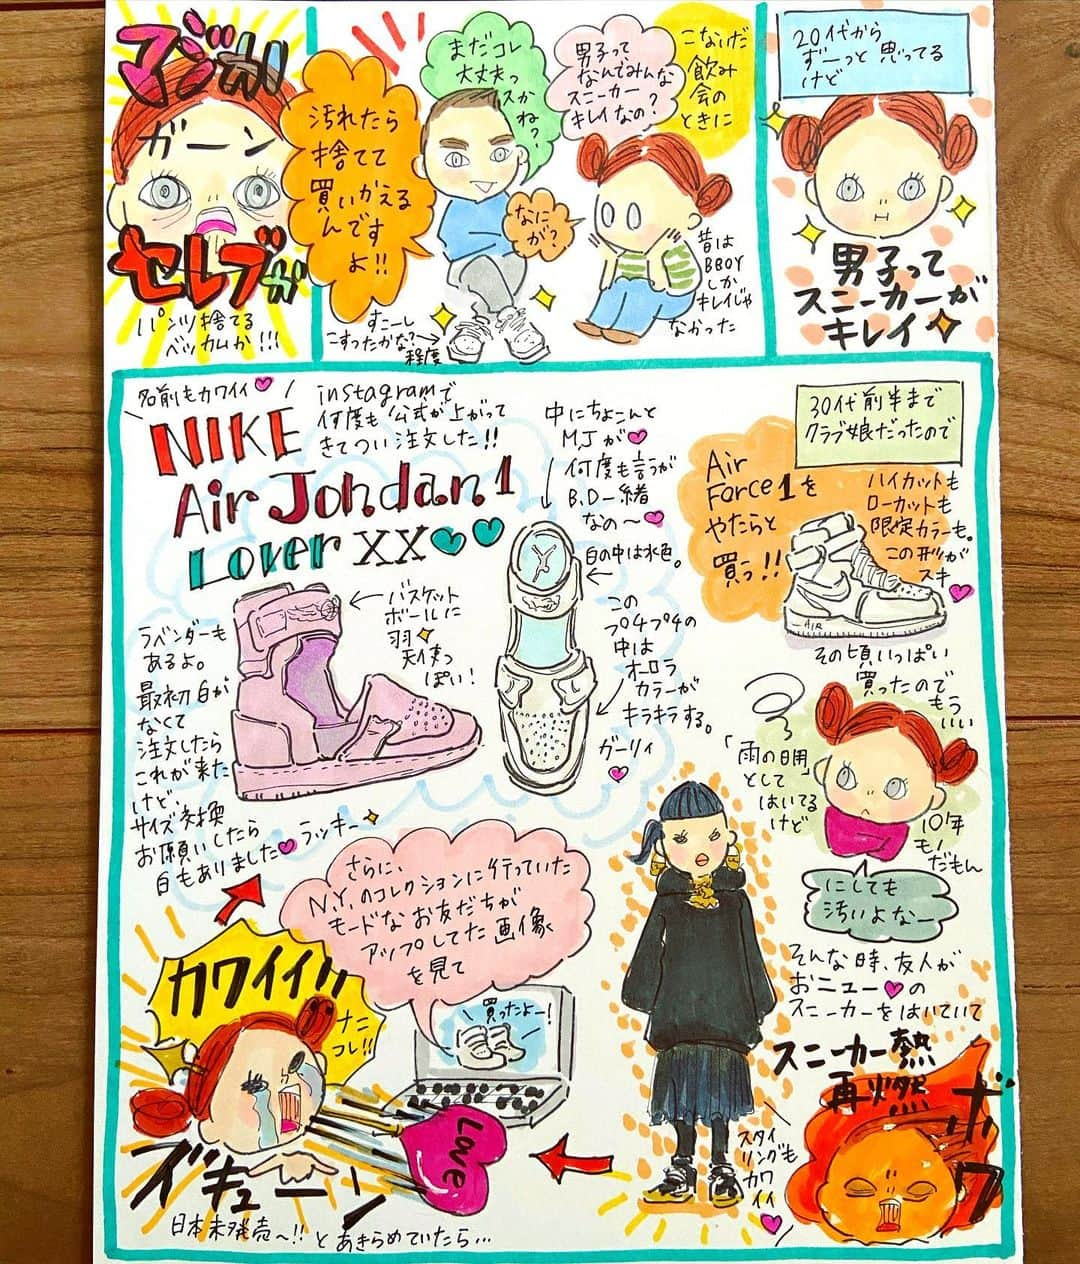 20代から
ずーっと思ってる
けど
男子って
スニーカーが
キレイ
こないだ
飲み
会の
ときに
男子って
なんでみんな
スニーカー
キレイなの？
まだコレ
大丈夫っ
スか
ね？
なに
が？
昔は
BBOY
しか
キレイじゃ
なかった
すこーし
こすったかな？
程度
汚れたら
捨てて
買いかえる
んです
よ!!
マジか!
ガーン
セレブか
パンツ捨てる
ベッカムか!!!
30代前半まで
クラブ娘だったので
Air
Force1を
やたらと
買う!!
ハイカットも
ローカットも
限定カラーも。
この形が
スキ
AIR
その頃いっぱい
買ったので
もう
いい
「雨の日用」
として
はいてる
けど
10年
も!
だもん
にしても
汚いよなー
そんな時、友人が
おニュー♥の
スニーカーをはいていて
スニーカー熱
再燃
ボワ
スタイ
リングも
カワ
イイ
さらに、
N.Y.のコレクションに行っていた
モードなお友だちが
アップしてた画像
を見て
買ったよー!
カワイイ!!
ナニ
コレ!!
LOVE
ズキューン
日本未発売〜!!とあきらめていたら…
名前もカワイイ♥
NIKE
Air Jordan1
Lover XX
instagramで
何度も公式が上がって
きてつい注文した!!
中にちょこんと
M.Jが♥
何度も言うが
B.D一緒
なの〜♥
白の中は水色。
この
プチプチの
中は
オーロラ
カラーが
キラキラする。
ガーリィ
バスケット
ボールに
羽
天使っ
ぽい!
ラベンダーも
あるよ。
最初白が
なくて
注文したら
これが来た
けど、
サイズ交換
お願いしたら
白もありました♥ラッキー